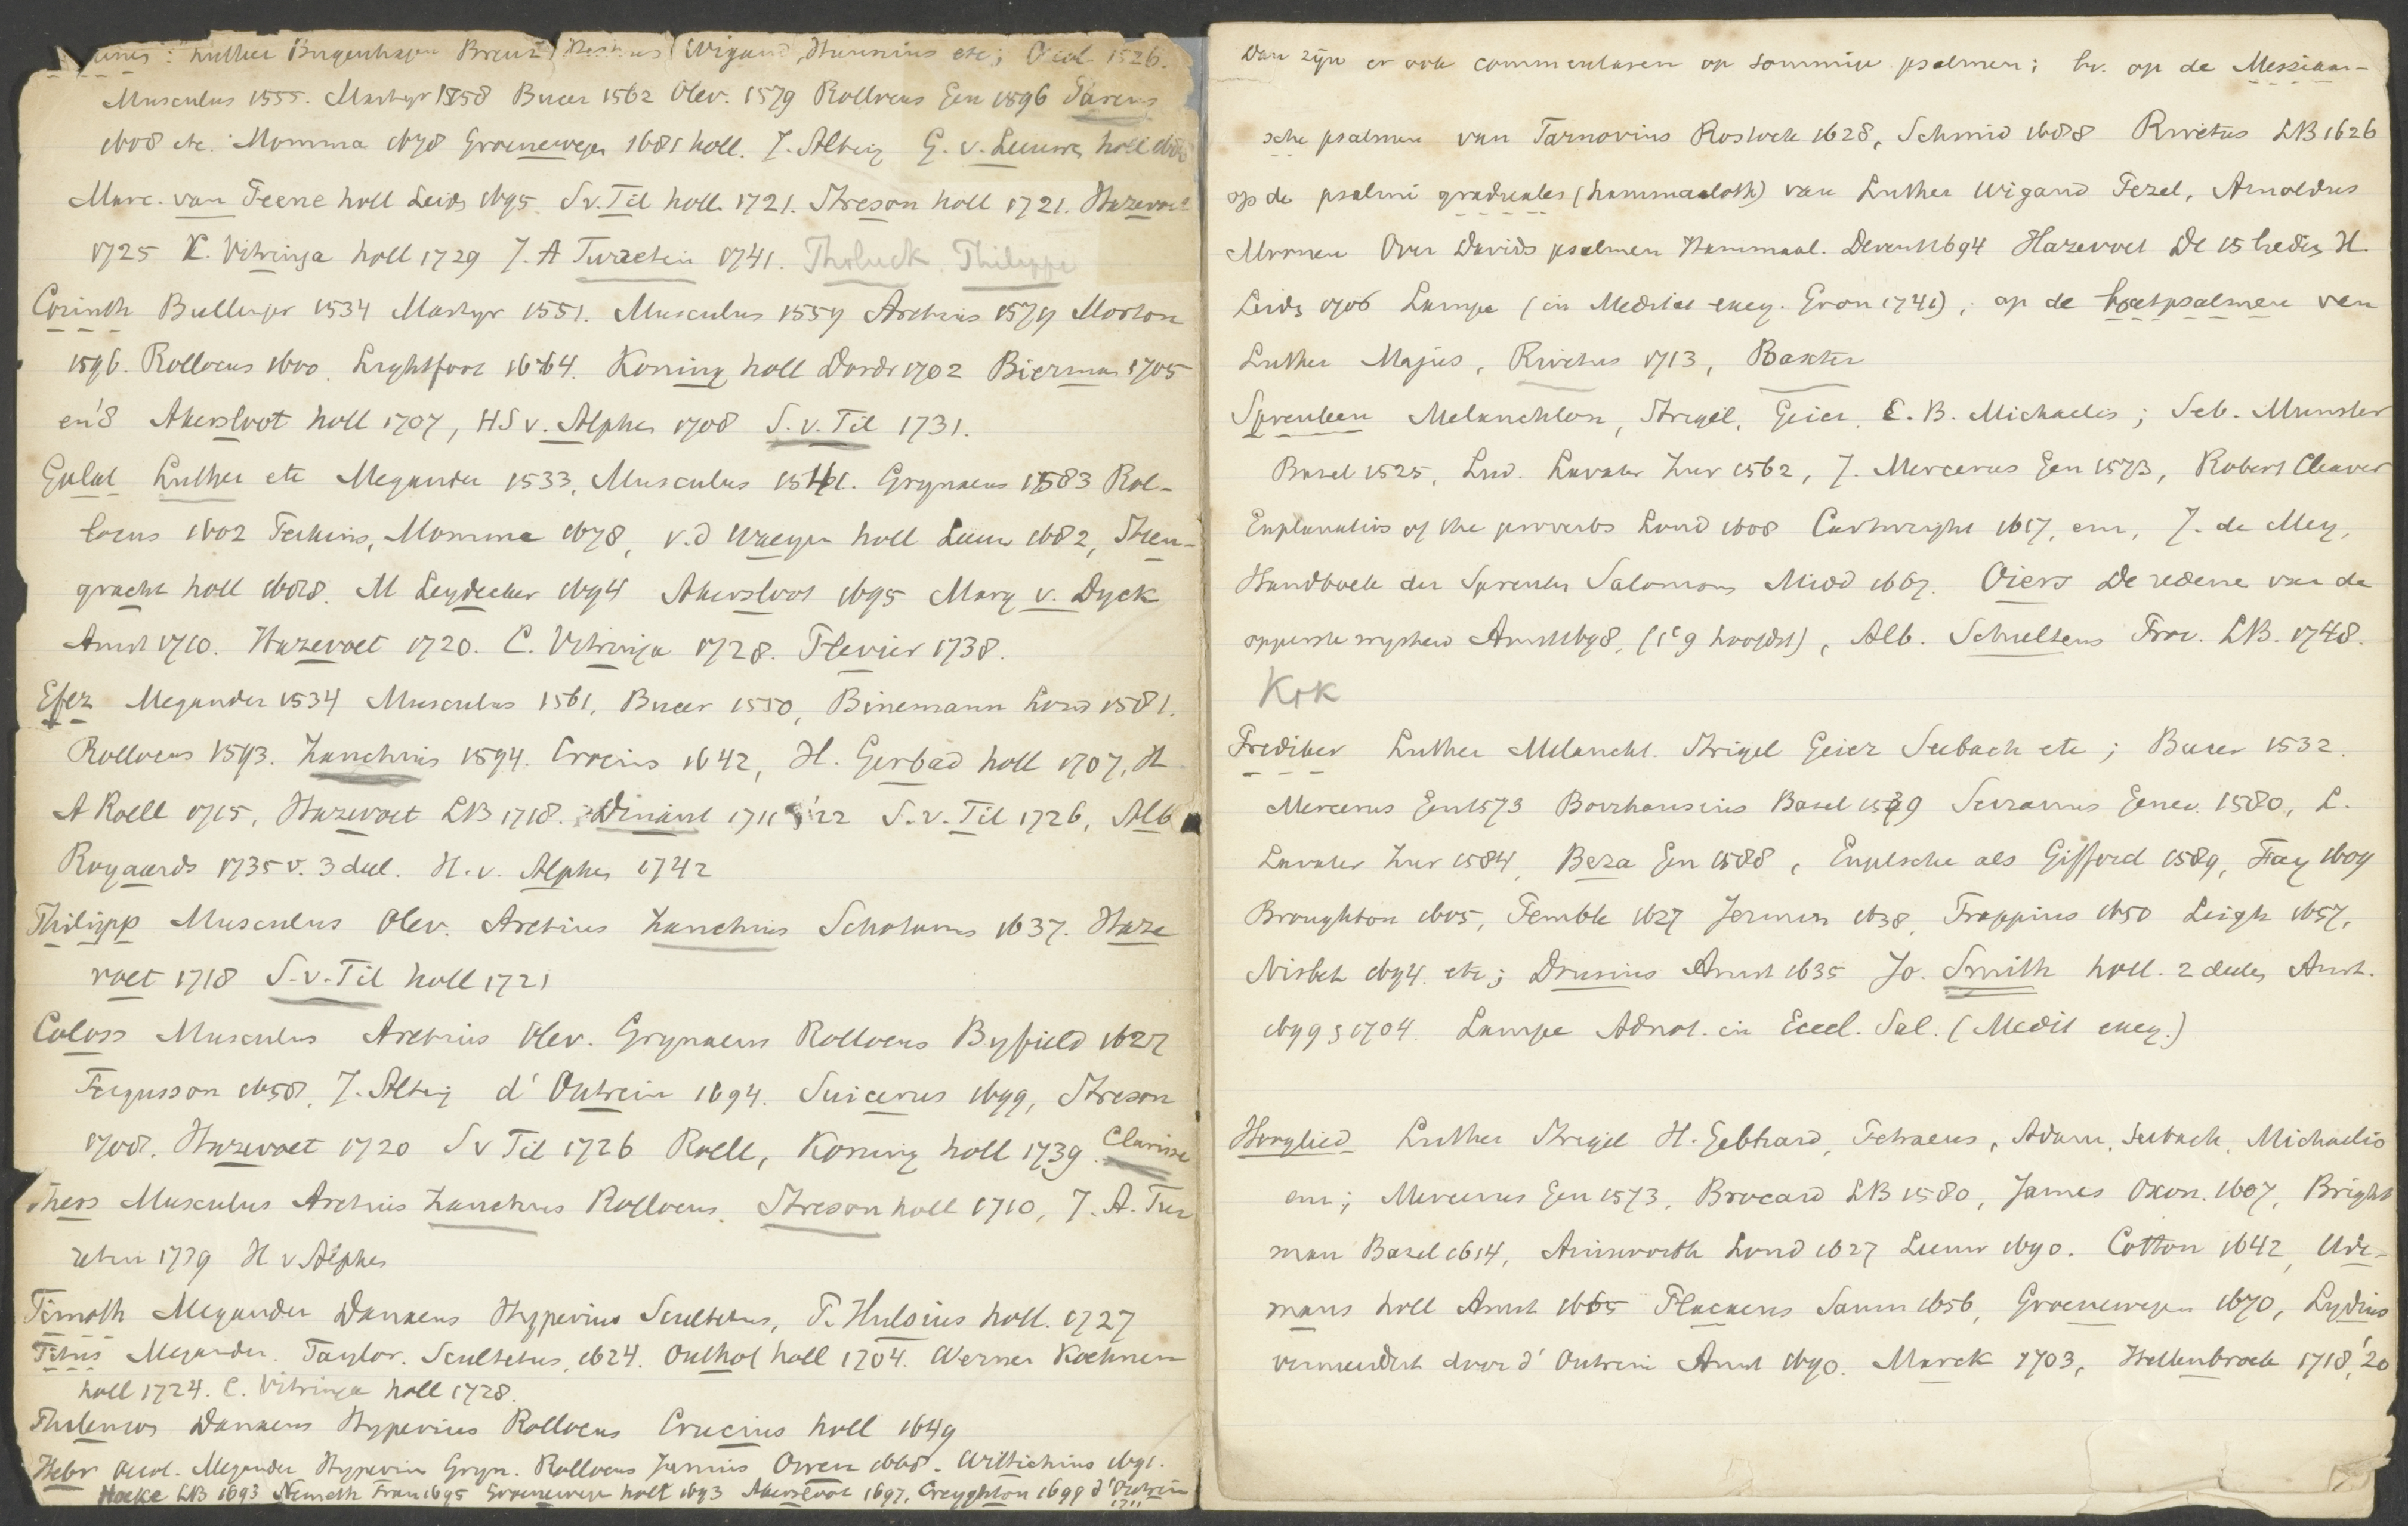 Luther Bugenhagen Brenz Wigand, Hunnius etc; Oecol. 1526.
Musculus 1555. Martyr 1558 Bucer 1562 Olev. 1579 Rollocus Gen 1596 Pareus
1608 etc. Momma 1678 Groenewegen 1681 holl. J. Alting G. v. Leeuwen holl
Marc. van Peene holl Leids 1695. S v. Til holl. 1721. Streson holl 1721. Hazevoet
1725 C. Vitringa holl 1729 J. A Turretin 1741. Tholuck. Philippi
Corinth Bullinger 1534 Martyr 1551. Musculus 1559 Aretius 1579 Morton
1596. Rollocus 1600. Lightfoot 1664. Koning holl Dordr 1702 Bierman 1705
en '8 Akersloot holl 1707, HS v. Alphen 1708 S. v. Til 1731.
Galat Luther etc Megander 1533, Musculus 1561. Grynaeus 1583 Rol-
locus 1602 Perkins, Momma 1678, v.d Waeyen holl Leeuw 1682, Steen-
gracht holl 1688. M Leydecker 1694 Akersloot 1695 Marg v. Dyck
Amst 1710. Hazevoet 1720. C. Vitringa 1728. Plevier 1738.
Efez Megander 1534 Musculus 1561, Bucer 1550, Binemann Lond 1581.
Rollocus 1593. Zanchius 1594. Crocius 1642, H. Gerbad holl 1707, H
A Roell 1715, Hazevoet LB 1718. Dinant 1711 '22 S. v. Til 1726, Alb
Royaards 1735 v. 3 deel. H. v. Alphen 1742
Philipp Musculus Olev. Aretius Zanchius Schotanus 1637. Haze
voet 1718 S. v. Til holl 1721
Coloss Musculus Aretius Olev. Grynaeus Rollocus Byfield 1627
Fergusson 1658, J. Alting d' Outrein 1694. Suicerus 1699, Streson
1708. Hazevoet 1720 S v Til 1726 Roell, Koning holl 1739. Clarisse
Thess Musculus Aretius Zanchius Rollocus. Streson holl 1710, J. A. Tur
retin 1739 H v Alphen
Timoth Megander Danaeus Hyperius Scultetus, P. Hulsius holl. 1727
Titus Megander. Taylor. Scultetus, 1624. Outhof holl 1704. Werner Koehnen
holl 1724. C. Vitringa holl 1728.
Philemon Danaeus Hyperius Rollocus Crucius holl 1649
Hebr Oecol. Megander Hyperius Gryn. Rollocus Junius Owen 1668. Wittichius 1691.
Hoeke LB 1693 Nemeth Fran 1695 Groenewegen holl 1693 Akersloot 1697, Creyghton 1699 d' Outrein
1711
Dan zijn er ook commentaren op sommige psalmen; bv. op de Messiaan-
sche psalmen van Tarnovius Rostock 1628, Schmid 1688 Rivetus LB 1626
op de psalmi graduales (hammaaloth) van Luther Wigand Pezel, Arnoldus
Mornen Over Davids psalmen Hammaal. Devent 1694 Hazevoet De 15 liedn H.
Leids 1706 Lampe (in Meditat exeg. Gron 1741); op de boetpsalmen van
Luther Majus, Rivetus 1713, Baxter
Spreuken Melanchton, Strigel, Geier, C. B. Michaelis; Seb. Munster
Basel 1525, Lud. Lavater Zur 1562, J. Mercerus Gen 1573, Robert Cleaver
Explanation of the proverbs Lond 1608 Cartwright 1617, en, J. de Mey,
Handboek der Spreuken Salomons Midd 1667. Oiers De redene van de
opperste wysheid Amst 1698, (1e 9 hoofdst), Alb. Schultens Frov. LB. 1748.
KrK
Prediker Luther Melancht. Strigel Geier Seebach etc; Bucer 1532.
Mercerus Gen 1573 Borrhausius Basel 1539 Serranus Genev. 1580, L.
Lavater Zur 1584, Beza Gen 1588, Engelsche als Gifford 1589, Fay 1609
Broughton 1605, Pemble 1627 Jermin 1638, Trappius 1650 Leigh 1657,
Nisbet 1694. etc; Drusius Amst 1635 Jo. Smith holl. 2 deelen Amst.
1699 & 1704. Lampe Adnot. in Eccl. Sal. (Medit exeg.)
Hooglied Luther Strigel H. Gebhard, Petraeus, Adam, Seebach, Michaelis
en; Mercerus Gen 1573, Brocard LB 1580, James Oxon. 1607, Bright
man Basel 1614, Ainsworth Lond 1627 Leeuw 1690. Cotton 1642, Ude-
mans holl Amst 1665 Placaeus Saum 1656, Groenewegen 1670, Lydius
vermeerdert door d' Outrein Amst 1690. Marck 1703, Hellenbroek 1718, '20